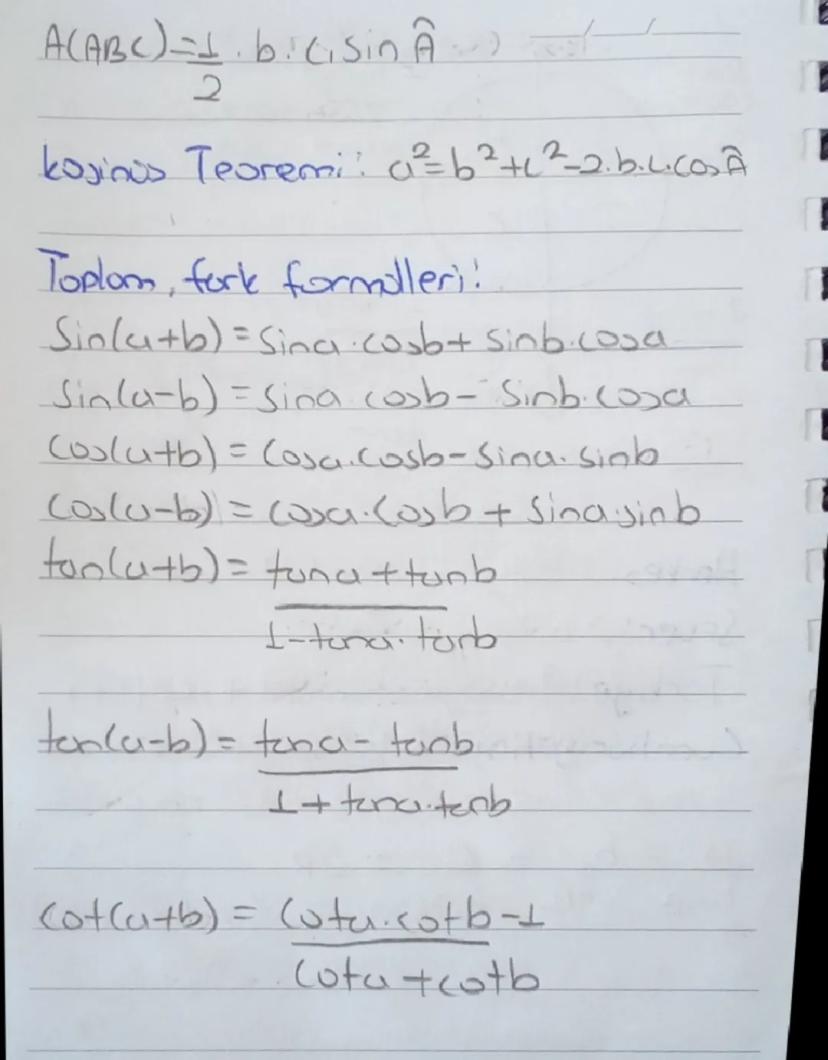 A(ABC)=1/2 . b . c . sin Â
Kosinüs Teoremi: a²=b²+c²-2.b.c.cos Â
Toplam, fark formülleri:
Sin(a+b) = sina.cosb+ sinb.cosa
sin(a-b) = sina cosb- sinb.cosa
Cos(a+b) = Cosa.cosb-sina.sinb
Cos(a-b) = cosa.cosb + sina.sinb
tan(a+b) = tana+tanb
1-tana.tanb
tan(a-b) = tana- tanb
1+tana.tanb
Cot(a+b) = Cota.cotb-1
Cota+cotb